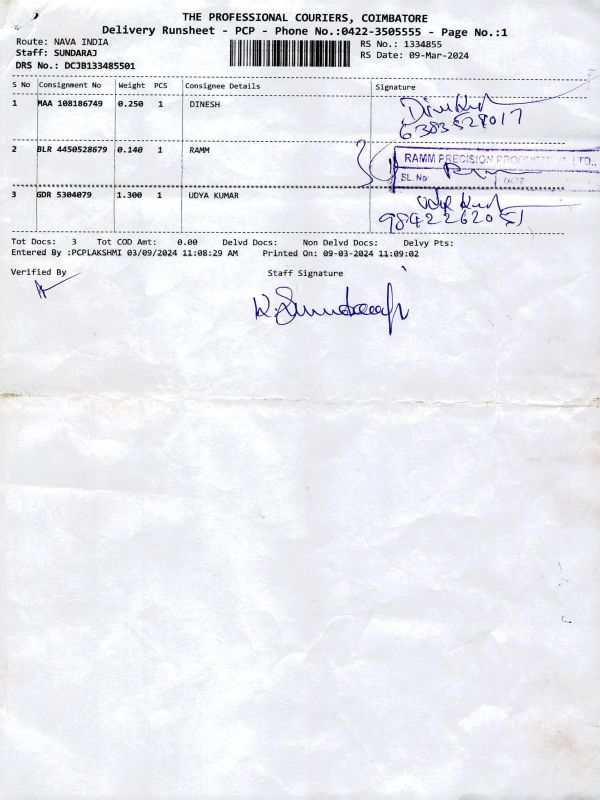 THE PROFESSIONAL COURIERS, COIMBATORE
Delivery Runsheet - PCP - Phone No.:0422-3505555 - Page No.:1
Route: NAVA INDIA
Staff: SUNDARAJ
DRS No.: DCJB133485501
RS No.: 1334855
RS Date: 09-Mar-2024
S No Consignment No Weight PCS Consignee Details Signature
1 MAA 108186749 0.250 1 DINESH
Dinesh
6383528017
2 BLR 4450528679 0.140 1 RAMM
RAMM PRECISION PRODUCTS P LTD.,
SL. No: DATE
3 GDR 5304079 1.300 1 UDYA KUMAR
9842262051
Tot Docs: 3 Tot COD Amt: 0.00 Delvd Docs: Non Delvd Docs: Delvy Pts:
Entered By :PCPLAKSHMI 03/09/2024 11:08:29 AM Printed On: 09-03-2024 11:09:02
Verified By Staff Signature
K. Sundaraj